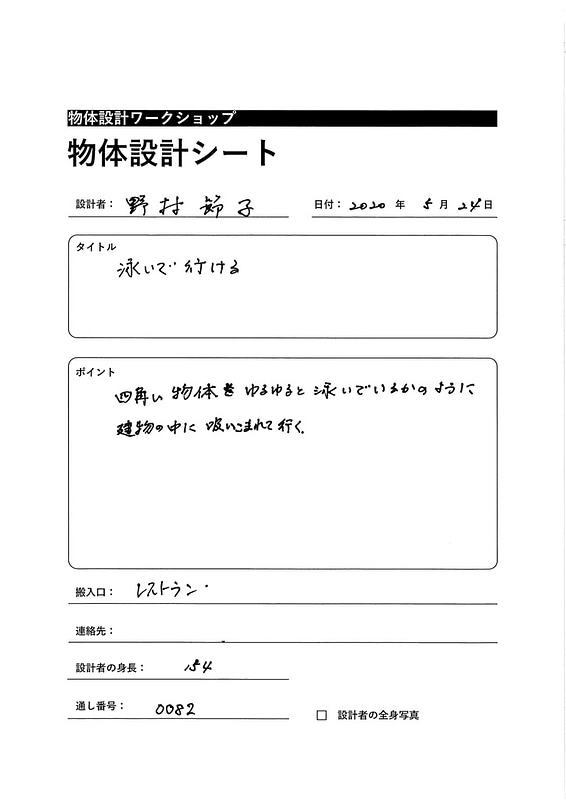 物体設計ワークショップ
物体設計シート
設計者： 野村 節子 日付： 2020 年 5 月 24 日
タイトル
泳いで行ける
ポイント
四角い物体をゆるゆると泳いでいるかのように
建物の中に吸いこまれて行く。
搬入口： レストラン
連絡先：
設計者の身長： 154
通し番号： 0082
□ 設計者の全身写真